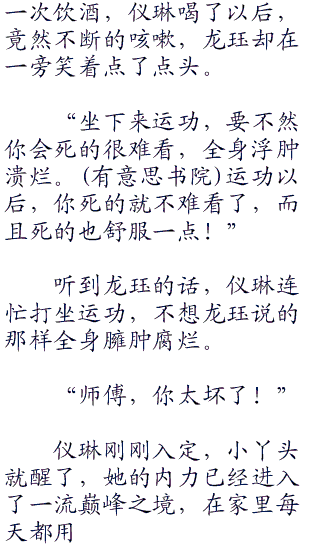 一次饮酒，仪琳喝了以后，
竟然不断的咳嗽，龙珏却在
一旁笑着点了点头。
“坐下来运功，要不然
你会死的很难看，全身浮肿
溃烂。(有意思书院)运功以
后，你死的就不难看了，而
且死的也舒服一点！”
听到龙珏的话，仪琳连
忙打坐运功，不想龙珏说的
那样全身臃肿腐烂。
“师傅，你太坏了！”
仪琳刚刚入定，小丫头
就醒了，她的内力已经进入
了一流巅峰之境，在家里每
天都用